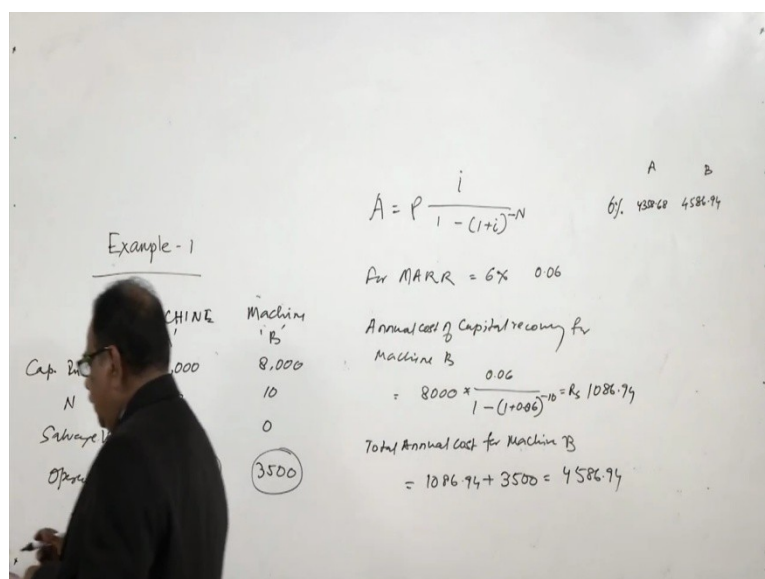 Example - 1
CHINE Machine
'B'
Cap. ,000 8,000
N 10
Salvage 0
3500
A = P i / 1 - (1+i)^-N
A B
6% 4358.68 4586.94
For MARR = 6% 0.06
Annual cost of Capital recovery for
Machine B
= 8000 * 0.06 / 1 - (1+0.06)^-10 = Rs 1086.94
Total Annual cost for Machine B
= 1086.94 + 3500 = 4586.94